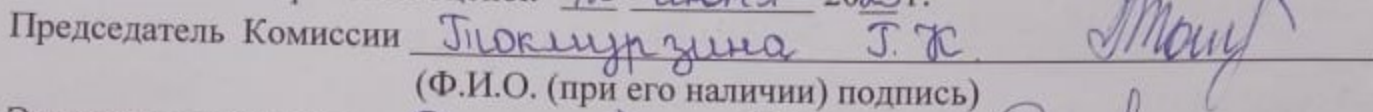 Председатель Комиссии Токмурзина Г. К.
(Ф.И.О. (при его наличии) подпись)